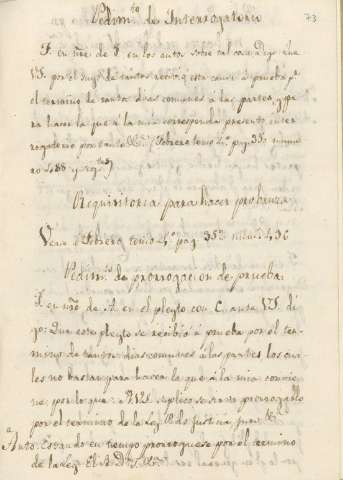 73
Pedim.to de Interrogatorio
F. en nñe de F. en los autos sobre tal cosa, Digo: Que
VS. por el de tantos recivió esta causa à prueba p.r
el termino de tantos dias comunes à las partes, y p.a
hacer la que à la mia corresponda presento inter-
rogatorio por tanto (Febrero tomo 4.º pag. 351 nume-
ro 488 y sig.tes)
Requisitoria para hacer probanza
Vease Febrero tomo 4.º pag. 353 num.º 496
Pedim.to de prorrogacion de prueba.
F. en nñe de A. en el pleyto con C. ante VS. di-
go: Que este pleyto se recibió à prueba por el ter-
mino de tantos dias comunes à las partes, los cua-
les no bastan para hacer la que à la mia convie-
ne, por lo que à VS. suplico se sirva prorrogarlo
por el termino de la Ley. Pido justicia, juro
Auto. Estando en tiempo prorroguese por el termino
de la Ley. El S.r D.n